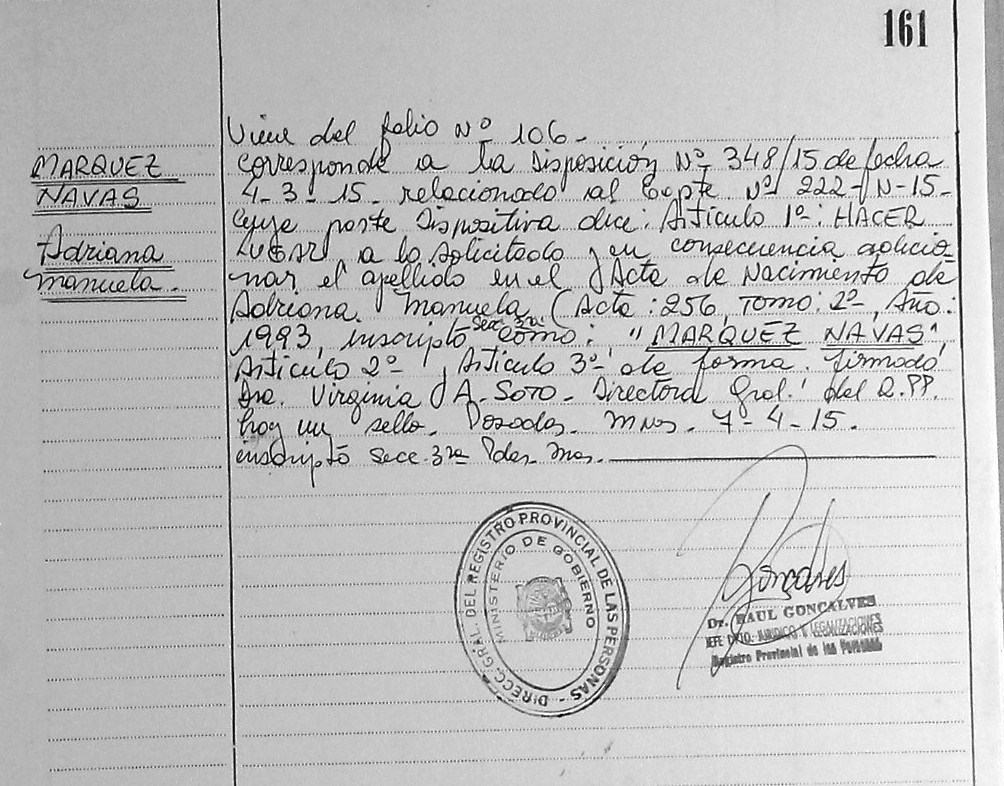 161
MARQUEZ
NAVAS
Adriana
Manuela.-
Viene del folio Nº 106-
Corresponde a la Disposición Nº 348/15 de fecha
4-3-15 relacionado al Expte Nº 222-N-15-
Cuya parte Dispositiva dice: Artículo 1º: HACER
LUGAR a lo solicitado y en consecuencia adicio-
nar el apellido en el Acta de Nacimiento de
Adriana Manuela (Acta: 256, Tomo: 2º, Año:
1993, inscripto Secc 3ra como: "MARQUEZ NAVAS"
Artículo 2º, Artículo 3º de forma. firmado
Dra. Virginia A. Soto - Directora Gral. del R.PP.
hay un sello. Posadas. Mnes. 7-4-15.
inscripto Secc. 3ra Pdas. Mnes.
DIRECC. GRAL. DEL REGISTRO PROVINCIAL DE LAS PERSONAS -
MINISTERIO DE GOBIERNO
Goncalves
Dr. RAUL GONCALVES
JEFE DPTO. JURIDICO Y LEGALIZACIONES
Registro Provincial de las Personas